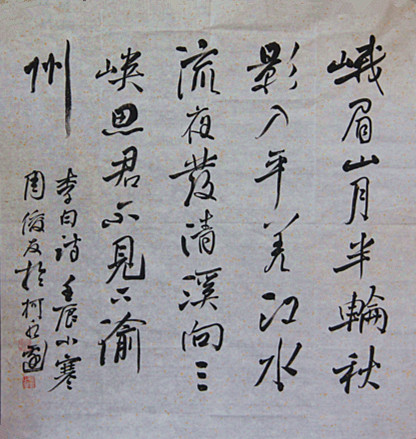 峨眉山月半輪秋
影入平羌江水
流夜發清溪向三
峽思君不見下渝
州
李白詩 壬辰小寒
周俊友於柯